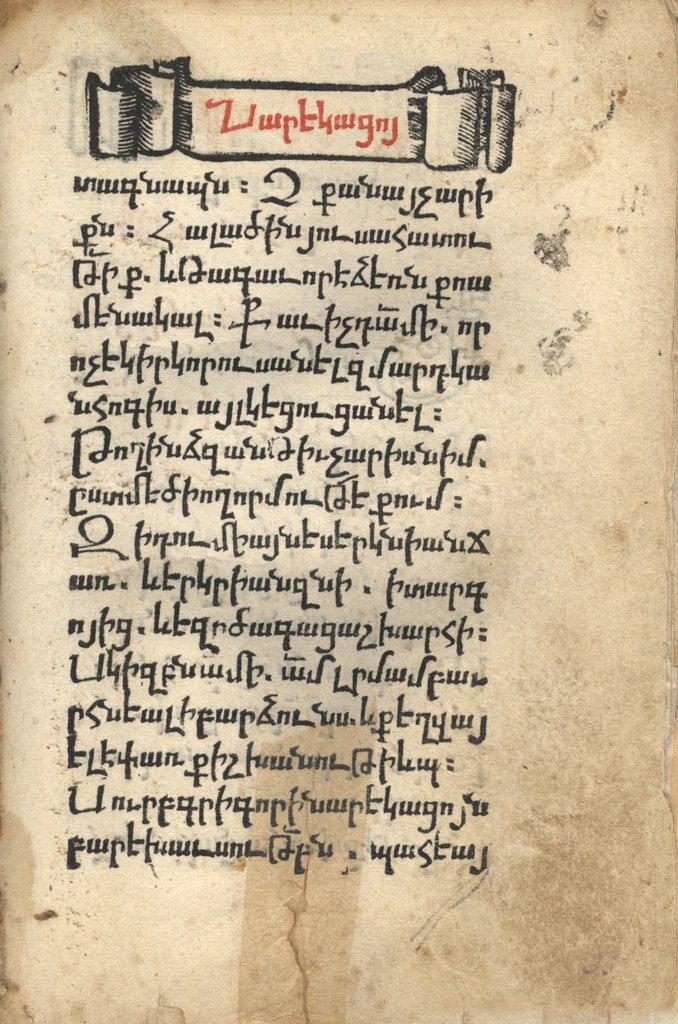 Նարեկացոյ
տագնապս : Զ քանայչարի
քն : Հ ալածիս յուսահատու
թիք . և թագաւորէ ձեռն քոա
մենակալ : Ք աւիչդ ամի . որ
ոչեկիր կորուսանել զմարդկա
նհոգիս . այլ կեցուցանել :
Թողինձ զանթիւ չարիս իմ .
ըստ մեծի ողորմութե քում :
Զ ի դու միայնես երկնի անձ
առ . և երկրի անզնի . ի տարգ
ոյից . և եզր ծագաց աշխարհի :
Սկիզբն ամի . ամ լրմամբ աւ
րհնեալ ի բարձունս . և քեզ վայ
ելե փառք իշխանութիւն :
Սուրբ գրիգորի նարեկացոյն
բարեխաւսութբն . պահեայ